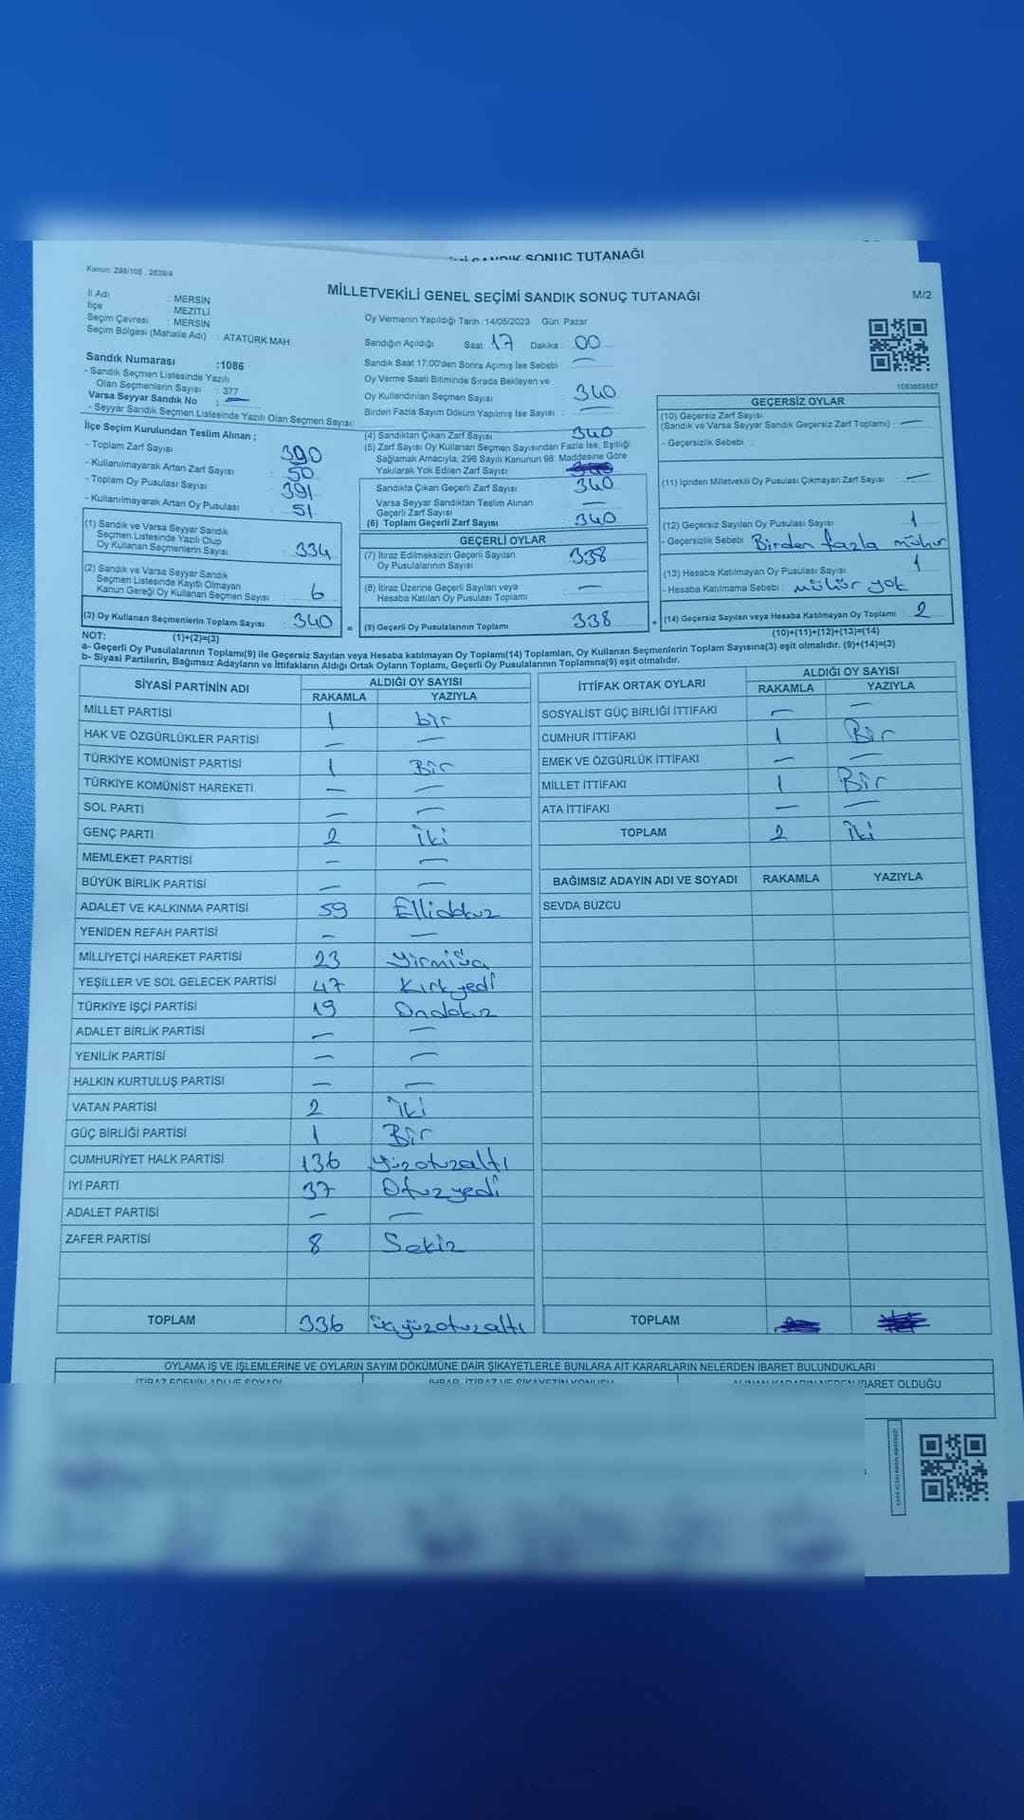 SANDIK SONUÇ TUTANAĞI
Kanun: 298/105 , 2839/4
MİLLETVEKİLİ GENEL SEÇİMİ SANDIK SONUÇ TUTANAĞI
M/2
İl Adı : MERSİN
İlçe : MEZİTLİ
Seçim Çevresi : MERSİN
Seçim Bölgesi (Mahalle Adı) : ATATÜRK MAH.
Sandık Numarası :1086
- Sandık Seçmen Listesinde Yazılı
Olan Seçmenlerin Sayısı : 377
Varsa Seyyar Sandık No : —
- Seyyar Sandık Seçmen Listesinde Yazılı Olan Seçmen Sayısı:
İlçe Seçim Kurulundan Teslim Alınan ;
- Toplam Zarf Sayısı : 390
- Kullanılmayarak Artan Zarf Sayısı : 50
- Toplam Oy Pusulası Sayısı : 391
- Kullanılmayarak Artan Oy Pusulası : 51
(1) Sandık ve Varsa Seyyar Sandık
Seçmen Listesinde Yazılı Olup
Oy Kullanan Seçmenlerin Sayısı : 334
(2) Sandık ve Varsa Seyyar Sandık
Seçmen Listesinde Kayıtlı Olmayan
Kanun Gereği Oy Kullanan Seçmen Sayısı : 6
(3) Oy Kullanan Seçmenlerin Toplam Sayısı : 340
(1)+(2)=(3)
Oy Vermenin Yapıldığı Tarih : 14/05/2023 Gün: Pazar
Sandığın Açıldığı Saat: 17 Dakika : 00
Sandık Saat 17:00'den Sonra Açımış İse Sebebi : —
Oy Verme Saati Bitiminde Sırada Bekleyen ve
Oy Kullandırılan Seçmen Sayısı : 340
Birden Fazla Sayım Döküm Yapılmış İse Sayısı : —
(4) Sandıktan Çıkan Zarf Sayısı : 340
(5) Zarf Sayısı Oy Kullanan Seçmen Sayısından Fazla İse, Eşitliği
Sağlamak Amacıyla, 298 Sayılı Kanunun 98. Maddesine Göre
Yakılarak Yok Edilen Zarf Sayısı :
Sandıkta Çıkan Geçerli Zarf Sayısı : 340
Varsa Seyyar Sandıktan Teslim Alınan
Geçerli Zarf Sayısı : —
(6) Toplam Geçerli Zarf Sayısı : 340
GEÇERLİ OYLAR
(7) İtiraz Edilmeksizin Geçerli Sayılan
Oy Pusulalarının Sayısı : 338
(8) İtiraz Üzerine Geçerli Sayılan veya
Hesaba Katılan Oy Pusulası Toplamı : —
= (9) Geçerli Oy Pusulalarının Toplamı : 338
GEÇERSİZ OYLAR
(10) Geçersiz Zarf Sayısı
(Sandık ve Varsa Seyyar Sandık Geçersiz Zarf Toplamı) : —
- Geçersizlik Sebebi :
(11) İçinden Milletvekili Oy Pusulası Çıkmayan Zarf Sayısı : —
(12) Geçersiz Sayılan Oy Pusulası Sayısı : 1
- Geçersizlik Sebebi : Birden fazla mühür
(13) Hesaba Katılmayan Oy Pusulası Sayısı : 1
- Hesaba Katılmama Sebebi : mühür yok
+ (14) Geçersiz Sayılan veya Hesaba Katılmayan Oy Toplamı : 2
(10)+(11)+(12)+(13)=(14)
NOT:
a- Geçerli Oy Pusulalarının Toplamı(9) ile Geçersiz Sayılan veya Hesaba katılmayan Oy Toplamı(14) Toplamları, Oy Kullanan Seçmenlerin Toplam Sayısına(3) eşit olmalıdır. (9)+(14)=(3)
b- Siyasi Partilerin, Bağımsız Adayların ve İttifakların Aldığı Ortak Oyların Toplamı, Geçerli Oy Pusulalarının Toplamına(9) eşit olmalıdır.
SİYASİ PARTİNİN ADI ALDIĞI OY SAYISI
RAKAMLA YAZIYLA
MİLLET PARTİSİ 1 bir
HAK VE ÖZGÜRLÜKLER PARTİSİ — —
TÜRKİYE KOMÜNİST PARTİSİ 1 Bir
TÜRKİYE KOMÜNİST HAREKETİ — —
SOL PARTİ — —
GENÇ PARTİ 2 İki
MEMLEKET PARTİSİ — —
BÜYÜK BİRLİK PARTİSİ — —
ADALET VE KALKINMA PARTİSİ 59 Ellidokuz
YENİDEN REFAH PARTİSİ — —
MİLLİYETÇİ HAREKET PARTİSİ 23 Yirmiüç
YEŞİLLER VE SOL GELECEK PARTİSİ 47 Kırkyedi
TÜRKİYE İŞÇİ PARTİSİ 19 Ondokuz
ADALET BİRLİK PARTİSİ — —
YENİLİK PARTİSİ — —
HALKIN KURTULUŞ PARTİSİ — —
VATAN PARTİSİ 2 İki
GÜÇ BİRLİĞİ PARTİSİ 1 Bir
CUMHURİYET HALK PARTİSİ 136 yüzotuzaltı
İYİ PARTİ 37 Otuzyedi
ADALET PARTİSİ — —
ZAFER PARTİSİ 8 Sekiz
TOPLAM 336 üçyüzotuzaltı
İTTİFAK ORTAK OYLARI ALDIĞI OY SAYISI
RAKAMLA YAZIYLA
SOSYALİST GÜÇ BİRLİĞİ İTTİFAKI — —
CUMHUR İTTİFAKI 1 Bir
EMEK VE ÖZGÜRLÜK İTTİFAKI — —
MİLLET İTTİFAKI 1 Bir
ATA İTTİFAKI — —
TOPLAM 2 İki
BAĞIMSIZ ADAYIN ADI VE SOYADI RAKAMLA YAZIYLA
SEVDA BUZCU
TOPLAM
OYLAMA İŞ VE İŞLEMLERİNE VE OYLARIN SAYIM DÖKÜMÜNE DAİR ŞİKAYETLERLE BUNLARA AİT KARARLARIN NELERDEN İBARET BULUNDUKLARI
İTİRAZ EDENİN ADI VE SOYADI İHBAR, İTİRAZ VE ŞİKAYETİN KONUSU ALINAN KARARIN NEDEN İBARET OLDUĞU